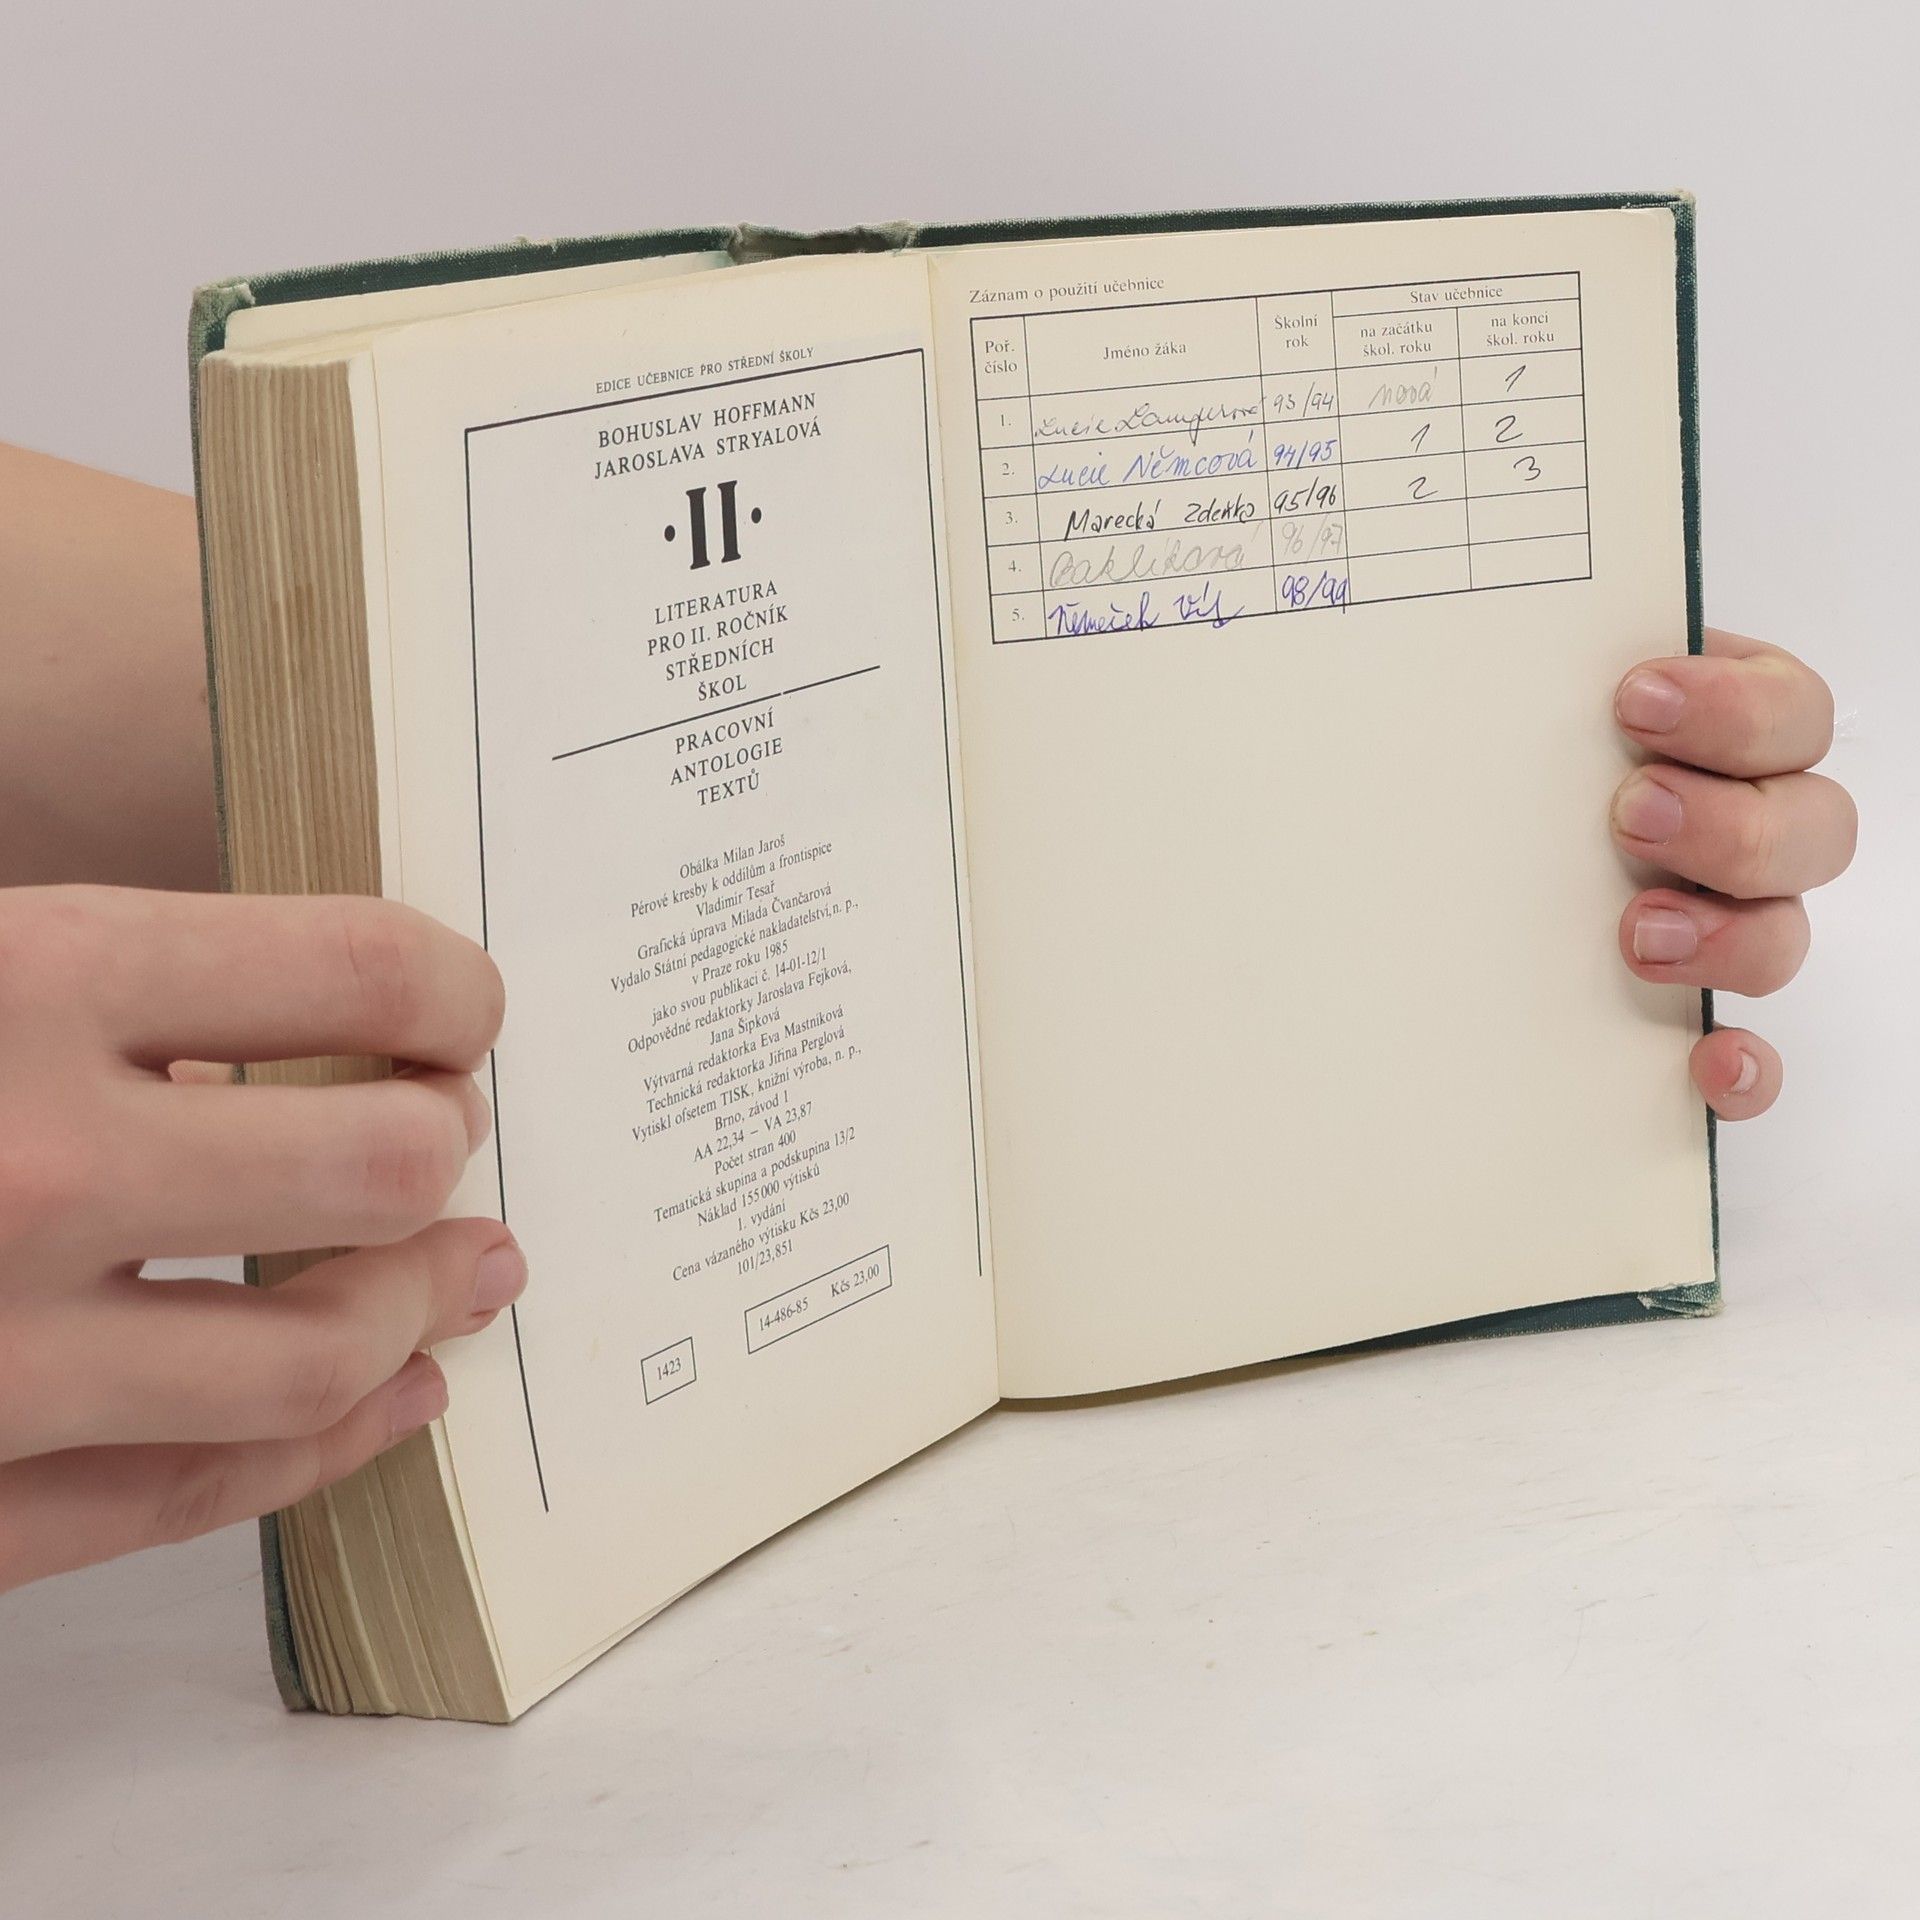 EDICE UČEBNICE PRO STŘEDNÍ ŠKOLY
BOHUSLAV HOFFMANN
JAROSLAVA STRYALOVÁ
·II·
LITERATURA
PRO II. ROČNÍK
STŘEDNÍCH
ŠKOL
PRACOVNÍ
ANTOLOGIE
TEXTŮ
Obálka Milan Jaroš
Pérové kresby k oddílům a frontispice
Vladimír Tesař
Grafická úprava Milada Čvančarová
Vydalo Státní pedagogické nakladatelství, n. p.,
v Praze roku 1985
jako svou publikaci č. 14-01-12/1
Odpovědné redaktorky Jaroslava Fejková,
Jana Šipková
Výtvarná redaktorka Eva Mastníková
Technická redaktorka Jiřina Perglová
Vytiskl ofsetem TISK, knižní výroba, n. p.,
Brno, závod 1
AA 22,34 – VA 23,87
Počet stran 400
Tematická skupina a podskupina 13/2
Náklad 155 000 výtisků
1. vydání
Cena vázaného výtisku Kčs 23,00
101/23,851
14-486-85 Kčs 23,00
1423
Záznam o použití učebnice
Poř. číslo Jméno žáka Školní rok Stav učebnice
na začátku škol. roku na konci škol. roku
1. Lucie 93/94 nová 1
2. Lucie Němcová 94/95 1 2
3. Marecká Zdeňka 95/96 2 3
4. 96/97
5. Němeček Vít 98/99